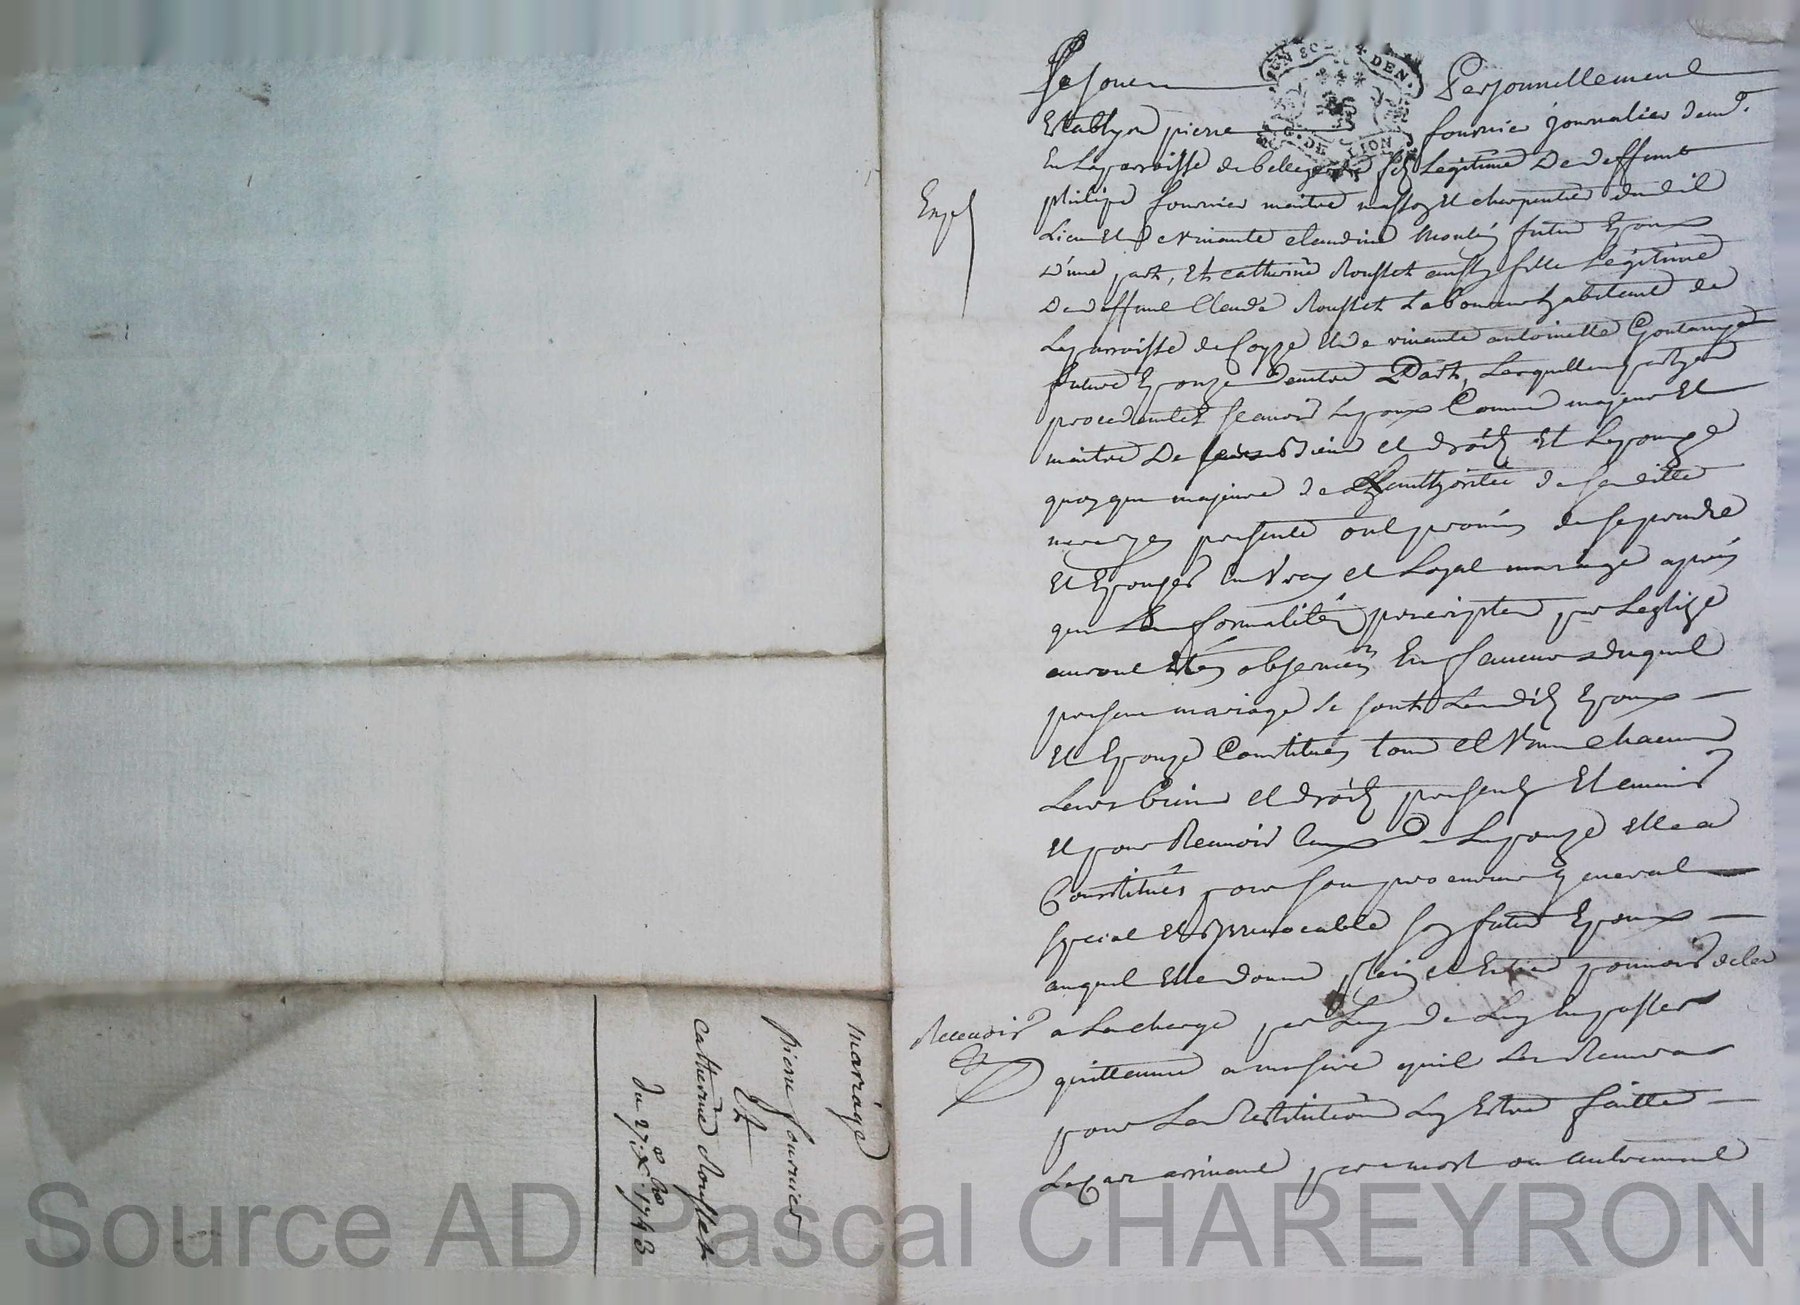 mariage
Pierre fournier
Et
Catherine Rousset
du 27e xbre 1743
Exped
Pe jouer Personnellement
Establys pierre fournier journalier demt
En la parroisse de bellegarde fils Legitime De deffunt
philipe fournier maitre masson Et charpentier dudit
Lieu Et de vivante claudine Moulin futur Epoux
D'une part, Et catherine Rousset aussy fille Legitime
De deffunt Claude Rousset Laboureur habitant de
La parroisse de Coyze Et de vivante antoinette
future Epouze Dautre Part, Lesquelles partyes
procedantes scavoir Lepoux Comme majeur Et
maitre De ses biens et droits Et Lepouze
quoy que majeure de Lauthoritée de saditte
mere yci presente ont promis de se prendre
Et Epouzer En vray et Loyal mariage apres
que Les formalités prescriptes par Leglize
auront Etés observées En faveur duquel
present mariage se sont Lesdits Epoux
Et Epouze Constitués tous et Un chacuns
Leurs biens et droits presents Et avenir
Et pour Recevoir Ceux De Lepouze Elle a
Constitués pour son procureur general
special Et Irrevocable son futur Epoux
auquel Elle donne plein et Entier pouvoir de les
Recevoir a La charge par Luy de Luy En passer
quittance a mesure quil Les Recevra
pour La Restitution Luy Estre faitte
Le Cas arrivant par mort ou autrement
UN SOL 4 DEN.
G. DE LION
Source AD Pascal CHAREYRON